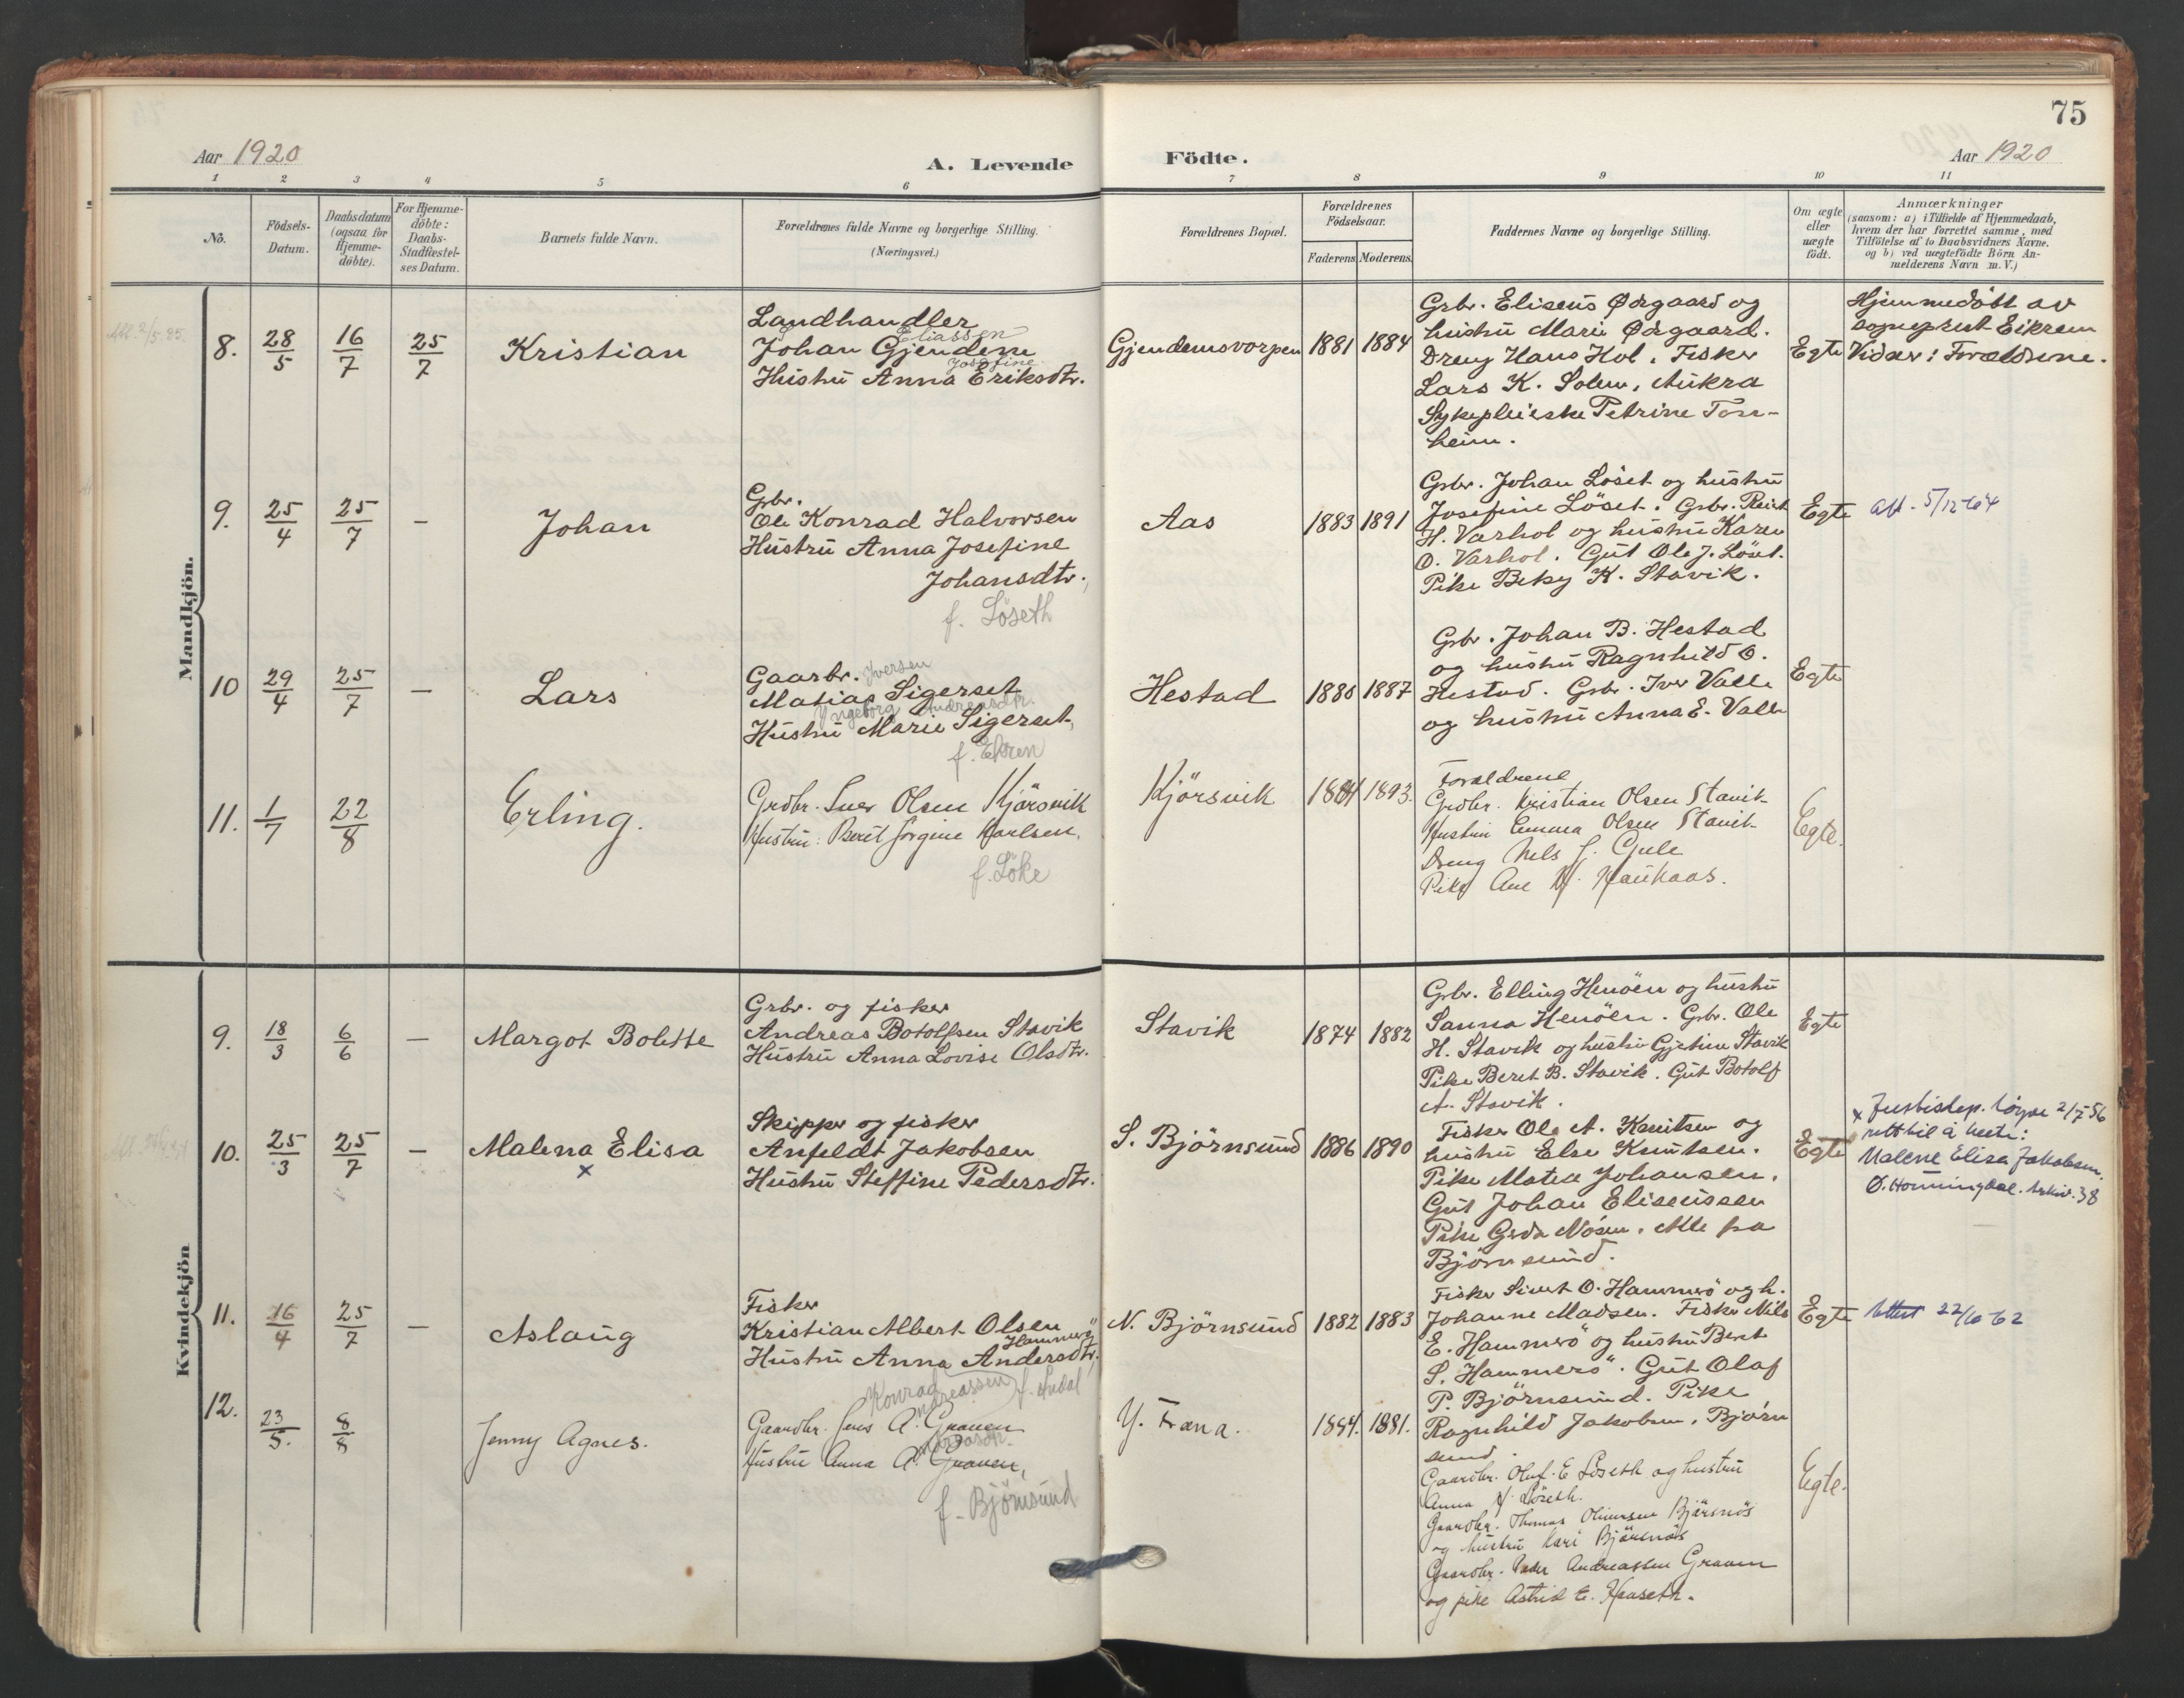 75
Aar 1920
A. Levende
Födte.
Aar 1920
1 2 3 4 5 6 7 8 9 10 11
No.
Födsels-
Datum.
Daabsdatum
(ogsaa for
Hjemme-
döbte).
For Hjemme-
döbte:
Daabs-
Stadfæstel-
ses Datum.
Barnets fulde Navn.
Forældrenes fulde Navne og borgerlige Stilling.
(Næringsvei.)
Forældrenes Bopæl.
Forældrenes
Födselsaar.
Faderens. Moderens.
Faddernes Navne og borgerlige Stilling.
Om ægte
eller
uægte
födt.
Anmærkninger
(saasom: a) i Tilfælde af Hjemmedaab,
hvem der har forrettet samme, med
Tilföielse af to Daabsvidners Navne.
og b) ved uægtefödte Börn An-
melderens Navn m. V.)
Mandkjön.
8. 28/5 16/7 25/7 Kristian
Landhandler
Eliassen
Johan Gjendem
Josefine
Hustru Anna Eriksdtr.
Gjendemsvorpen 1881 1884
Grbr. Eliseus Ødegaard og
hustru Marie Ødegaard.
Dreng Hans Hol. Fisker
Lars K. Solem, Aukra
Sykepleierske Petrine Torn-
heim.
Egte
Hjemmedöbt av
sogneprest Eikrem
Vidner: Forældrene.
9. 25/4 25/7 — Johan
Grbr.
Ole Konrad Halvorsen
Hustru Anna Josefine
Johansdtr.,
f. Löseth
Aas 1883 1891
Grbr. Johan Löset og hustru
Josefine Löset. Grbr.
H. Varhol og hustru Karen
O. Varhol. Gut Ole J. Löset.
Pike Betsy K. Stavik.
Egte
att. 5/12-64
10 29/4 25/7 — Lars
Gaarbr. Iversen
Matias Sigerset
Yngeborg Andreasdtr.
Hustru Marie Sigerset,
f. Ekren
Hestad 1887
Grbr. Johan B. Hestad
og hustru Ragnhild O.
Hestad. Grbr. Iver Valle
og hustru Anna E. Valle
Egte
11. 1/7 22/8 Erling.
Grdbr. Iver Olsen Kjörsvik
Hustru: Berit Jörgine Karlsen,
f. Löke
Kjörsvik 1893.
Forældrene
Grdbr. Kristian Olsen Stavik
Hustru Emma Olsen Stavik
Dreng Nels J. Gule
Pike Ane M. Haukaas.
Egte.
Kvindekjön
9. 18/3 6/6 — Margot Bolette
Grbr. og fisker
Andreas Botolfsen Stavik
Hustru Anna Lovise Olsdtr.
Stavik 1874 1882
Grbr. Elling Henöen og hustru
Sanna Henöen. Grbr. Ole
H. Stavik og hustru Gjertine Stavik
Pike Beret B. Stavik. Gut Botolf
A. Stavik.
Egte
10. 25/3 25/7 — Malena Elisa
x
Skipper og fisker
Anfeldt Jakobsen
Hustru Steffine Pedersdtr.
S. Björnsund 1886 1890
Fisker Ole A. Knutsen og
hustru Else Knutsen.
Pike Matea Johansen.
Gut Johan Eliseussen
Pike Gerda Nösen. Alle fra
Björnsund.
Egte
x Justisdep. 2/7-56
rett til å hete:
Malene Elisa Jakobsen.
11. 16/4 25/7 — Aslaug
Fisker
Kristian Albert Olsen
Hammerö
Hustru Anna Andersdtr.,
f. Indal
N. Björnsund 1882 1883
Fisker Sivert O. Hammerö og h.
Johanne Madsen. Fisker Nils
E. Hammerö og hustru Beret
S. Hammerö. Gut Olaf
P. Björnsund. Pike
Ragnhild Jakobsen, Björn
sund.
Egte
Attest 22/10-62
12. 23/5. 8/8 Jenny Agnes.
Konrad
Gaardbr. Jens A. Graven
Hustru Anna A. Graven,
f. Björnsund
Y. Fræna. 1884. 1881.
Gaardbr. Oluf. E Löseth og hustru
Anna J. Löseth.
Gaardbr. Thomas Bjørsnös
og hustru Kari Bjørsnös
Gaardbr. Peder Andreassen Graven
og pike Astrid E. Haaseth.
Egte.